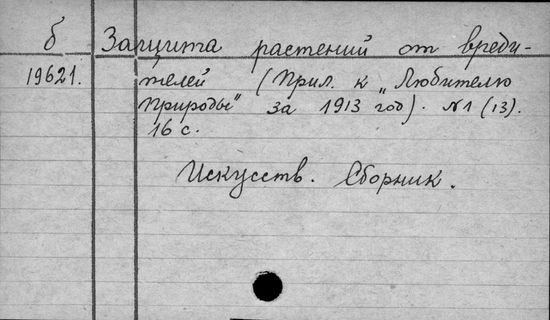 б Защита растений от вреди-
19621. телей (Прил. к „Любителю
Природы" за 1913 год). N1 (13).
16 с.
Искусств. Сборник.